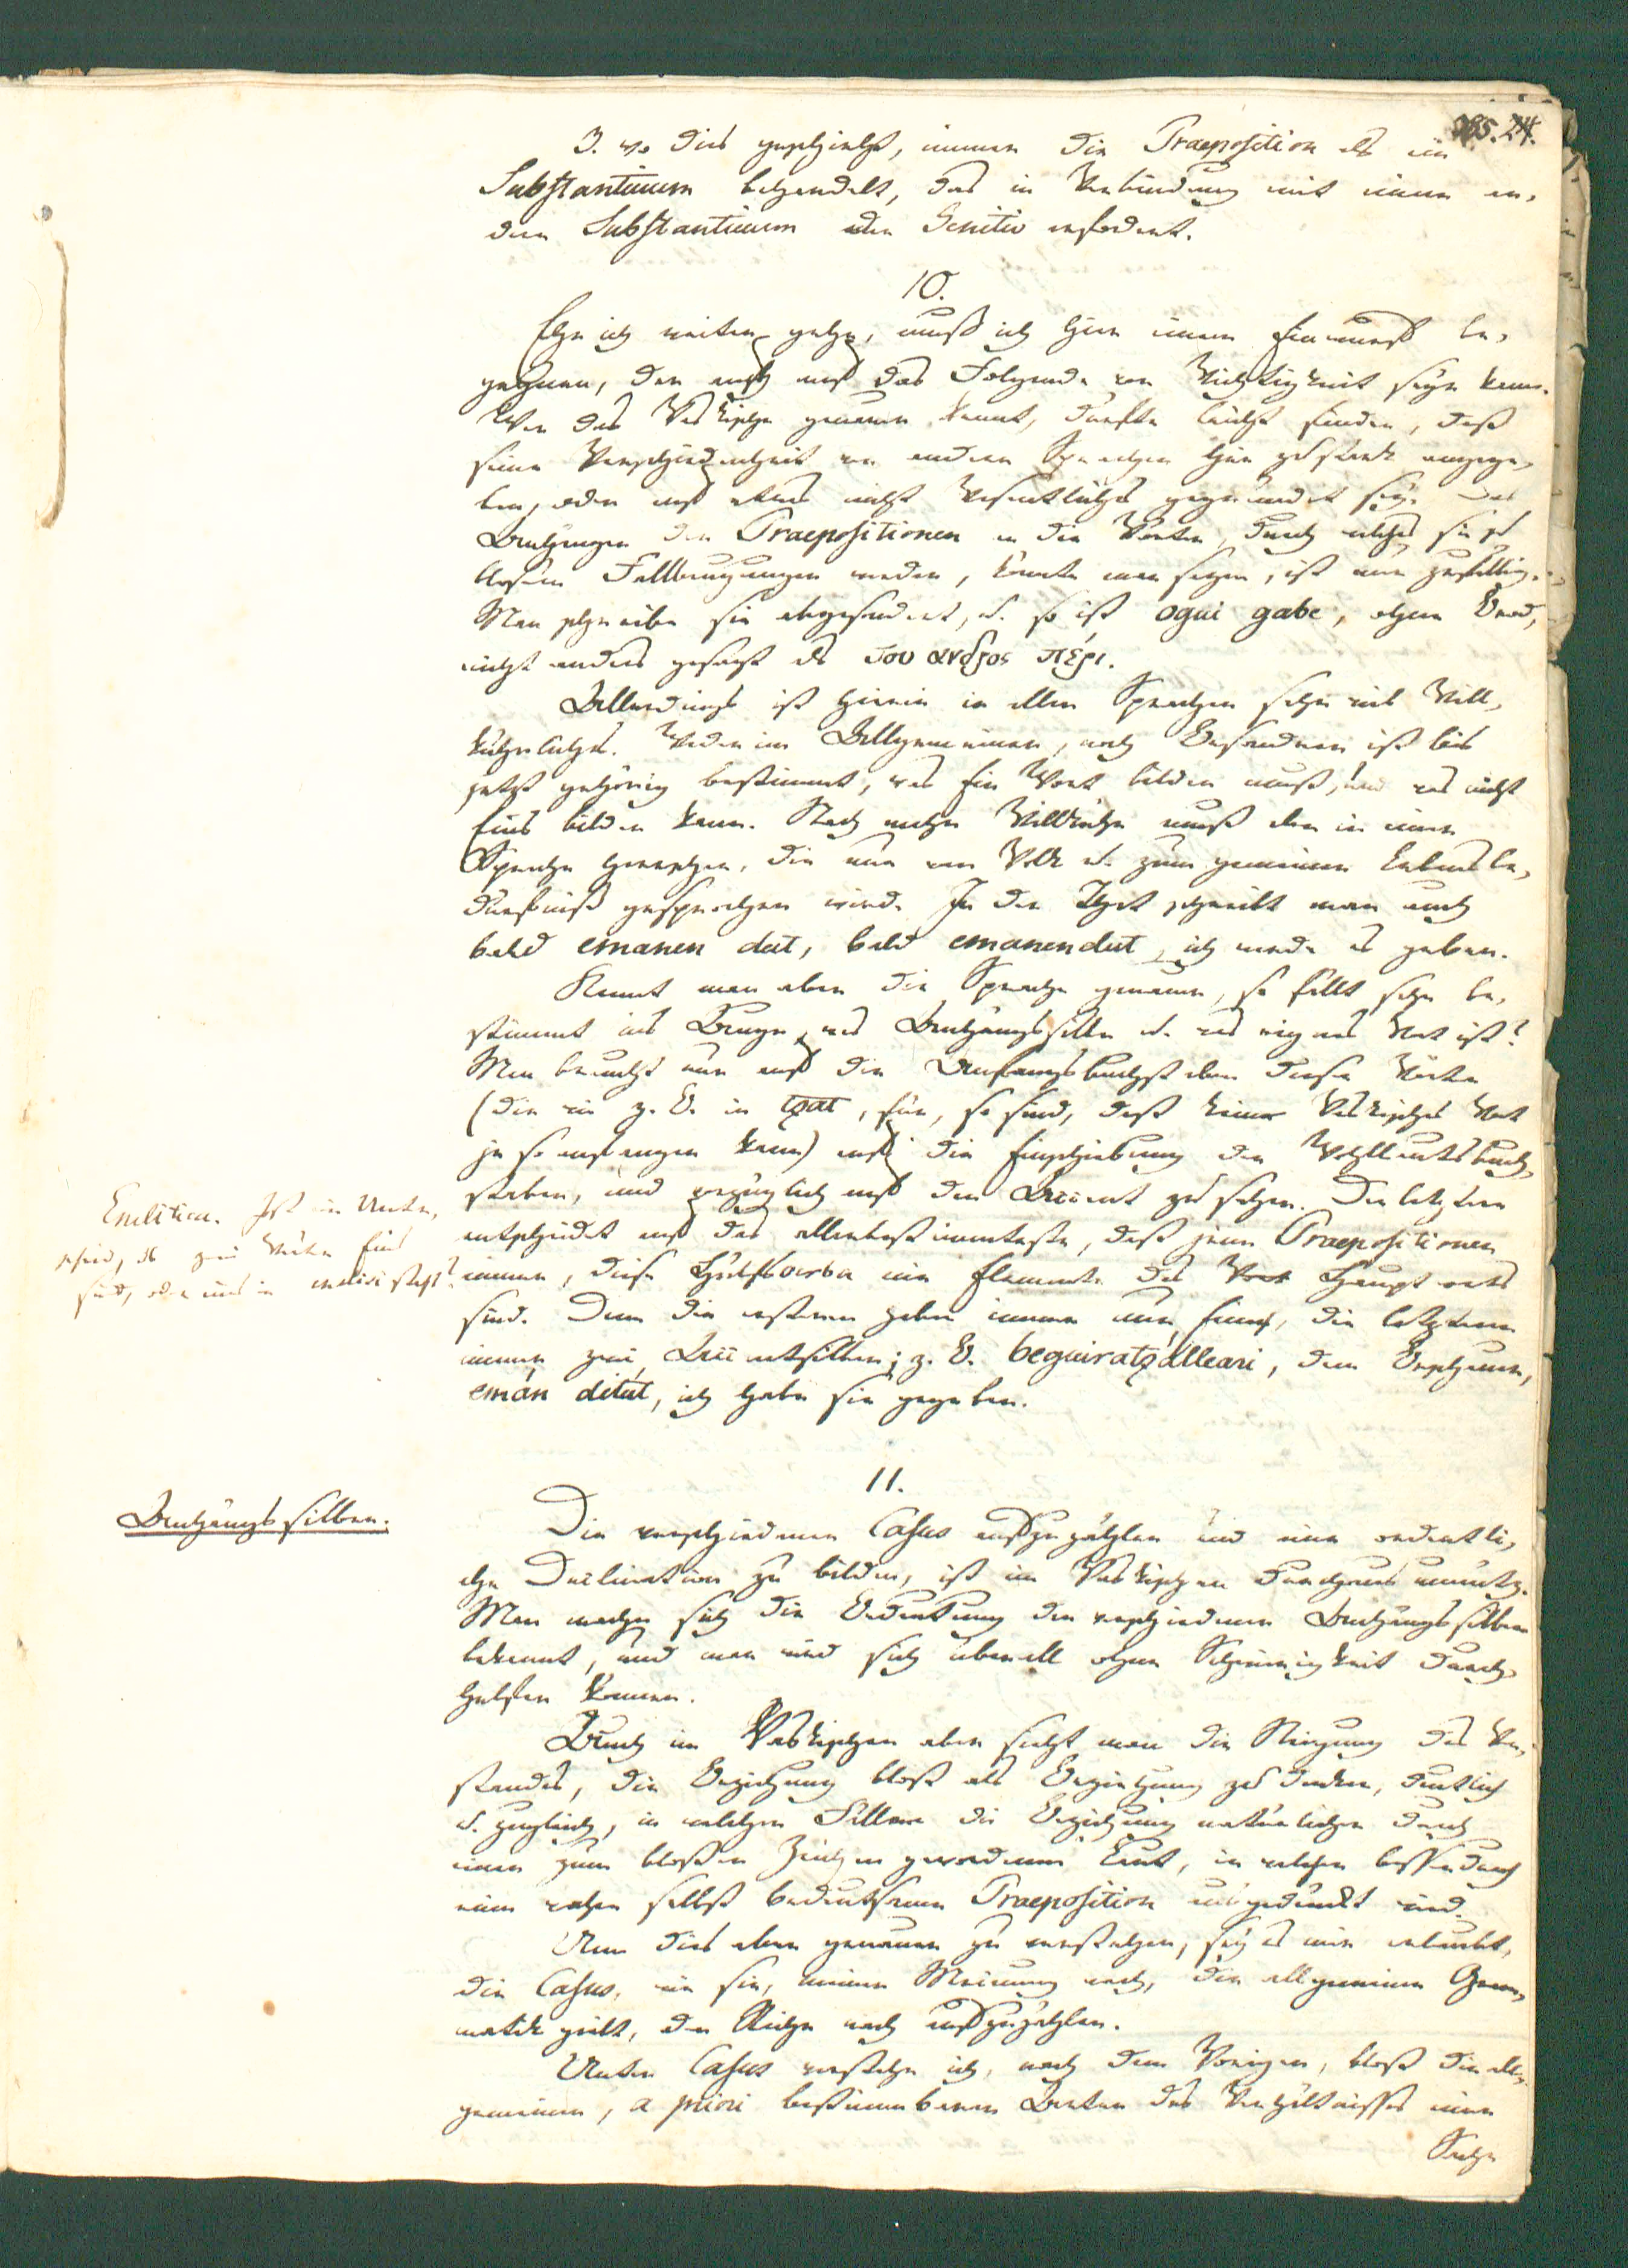 285. 24.
3. wo dies geschieht, immer die Praeposition als ein
Substantivum behandelt, das in Verbindung mit einem an-
dern Substantivum den Genitiv erfodert.
10.
Ehe ich weiter gehe, muß ich hier einem Einwurf be-
gegnen, der auch auf das Folgende von Wichtigkeit seyn kann.
Wer das Vaskische genauer kennt, dürfte leicht finden, daß
seine Verschiedenheit von andern Sprachen hier zu stark angege-
ben, oder auf etwas nicht Wesentliches gegründet sey. Das
Anhängen der Praepositionen an die Wörter, durch welches sie zu
bloßen Fallbeugungen werden, könnte man sagen, ist nur zufällig.
Man schreibe sie abgesondert, u. so ist ogui gabe, ohne Brod,
nicht anders gesagt als του ανδρος πέρι.
Allerdings ist hierin in allen Sprachen sehr viel Will-
kührliches. Weder im Allgemeinen, noch Besondren ist bis
jetzt gehörig bestimmt, was Ein Wort bilden muß, und was nicht
Eins bilden kann. Noch mehr Willkühr muß aber in einer
Sprache herrschen, die nur vom Volk u. zum gemeinen Lebensbe-
dürfniß gesprochen wird. In der That schreibt man auch
bald emanen dut, bald emanendut, ich werde es geben.
Kennt man aber die Sprache genauer, so fällt sehr be-
stimmt ins Auge, was Anhängssilbe u. was eignes Wort ist?
Man braucht nur auf die Anfangsbuchstaben dieser Wörter
(die wie z. B. in tzat, für, so sind, daß keine Vaskisches Wort
je so anfangen kann) auf die Einschiebung der Wohllautsbuch-
staben, und vorzüglich auf den Accent zu sehen. Der letztere
entscheidet auf das allerbestimmteste, daß jene Praepositionen
immer, diese Hülfsverba nie Elemente des Wort Hauptworts
sind. Denn die ersteren haben immer nur Eine, die letzteren
immer zwei Accentsilben; z. B. beguiratzálleari, dem Beschauer,
emán ditút, ich habe sie gegeben.
Enclitica. Ist ein Unter-
schied, ob zwei Wörter Eins
sind, oder eins in enclisi steht?
11.
Anhängssilben.
Die verschiedenen Casus aufzuzählen und eine ordentli-
che Declination zu bilden, ist im Vaskischen durchaus unnütz.
Man mache sich die Bedeutung der verschiedenen Anhängssilben
bekannt, und man wird sich überall ohne Schwierigkeit durch-
helfen können.
Auch im Vaskischen aber sieht man die Neigung des Ver-
standes, die Beziehung bloß als Beziehung zu denken, deutlich
u. zugleich, in welchen Fällen die Beziehung natürlicher durch
einen zum bloßen Zeichen gewordenen Laut, in welchen besser durch
eine rohe selbst bedeutsame Praeposition ausgedrückt wird.
Um dies aber genauer zu verstehen, sey es mir erlaubt,
die Casus, wie sie, meiner Meinung nach, die allgemeine Gram-
matik giebt, der Reihe nach aufzuzählen.
Unter Casus verstehe ich, nach dem Vorigen, bloß die all-
gemeinen, a priori bestimmbaren Arten des Verhältnisses einer
Sache